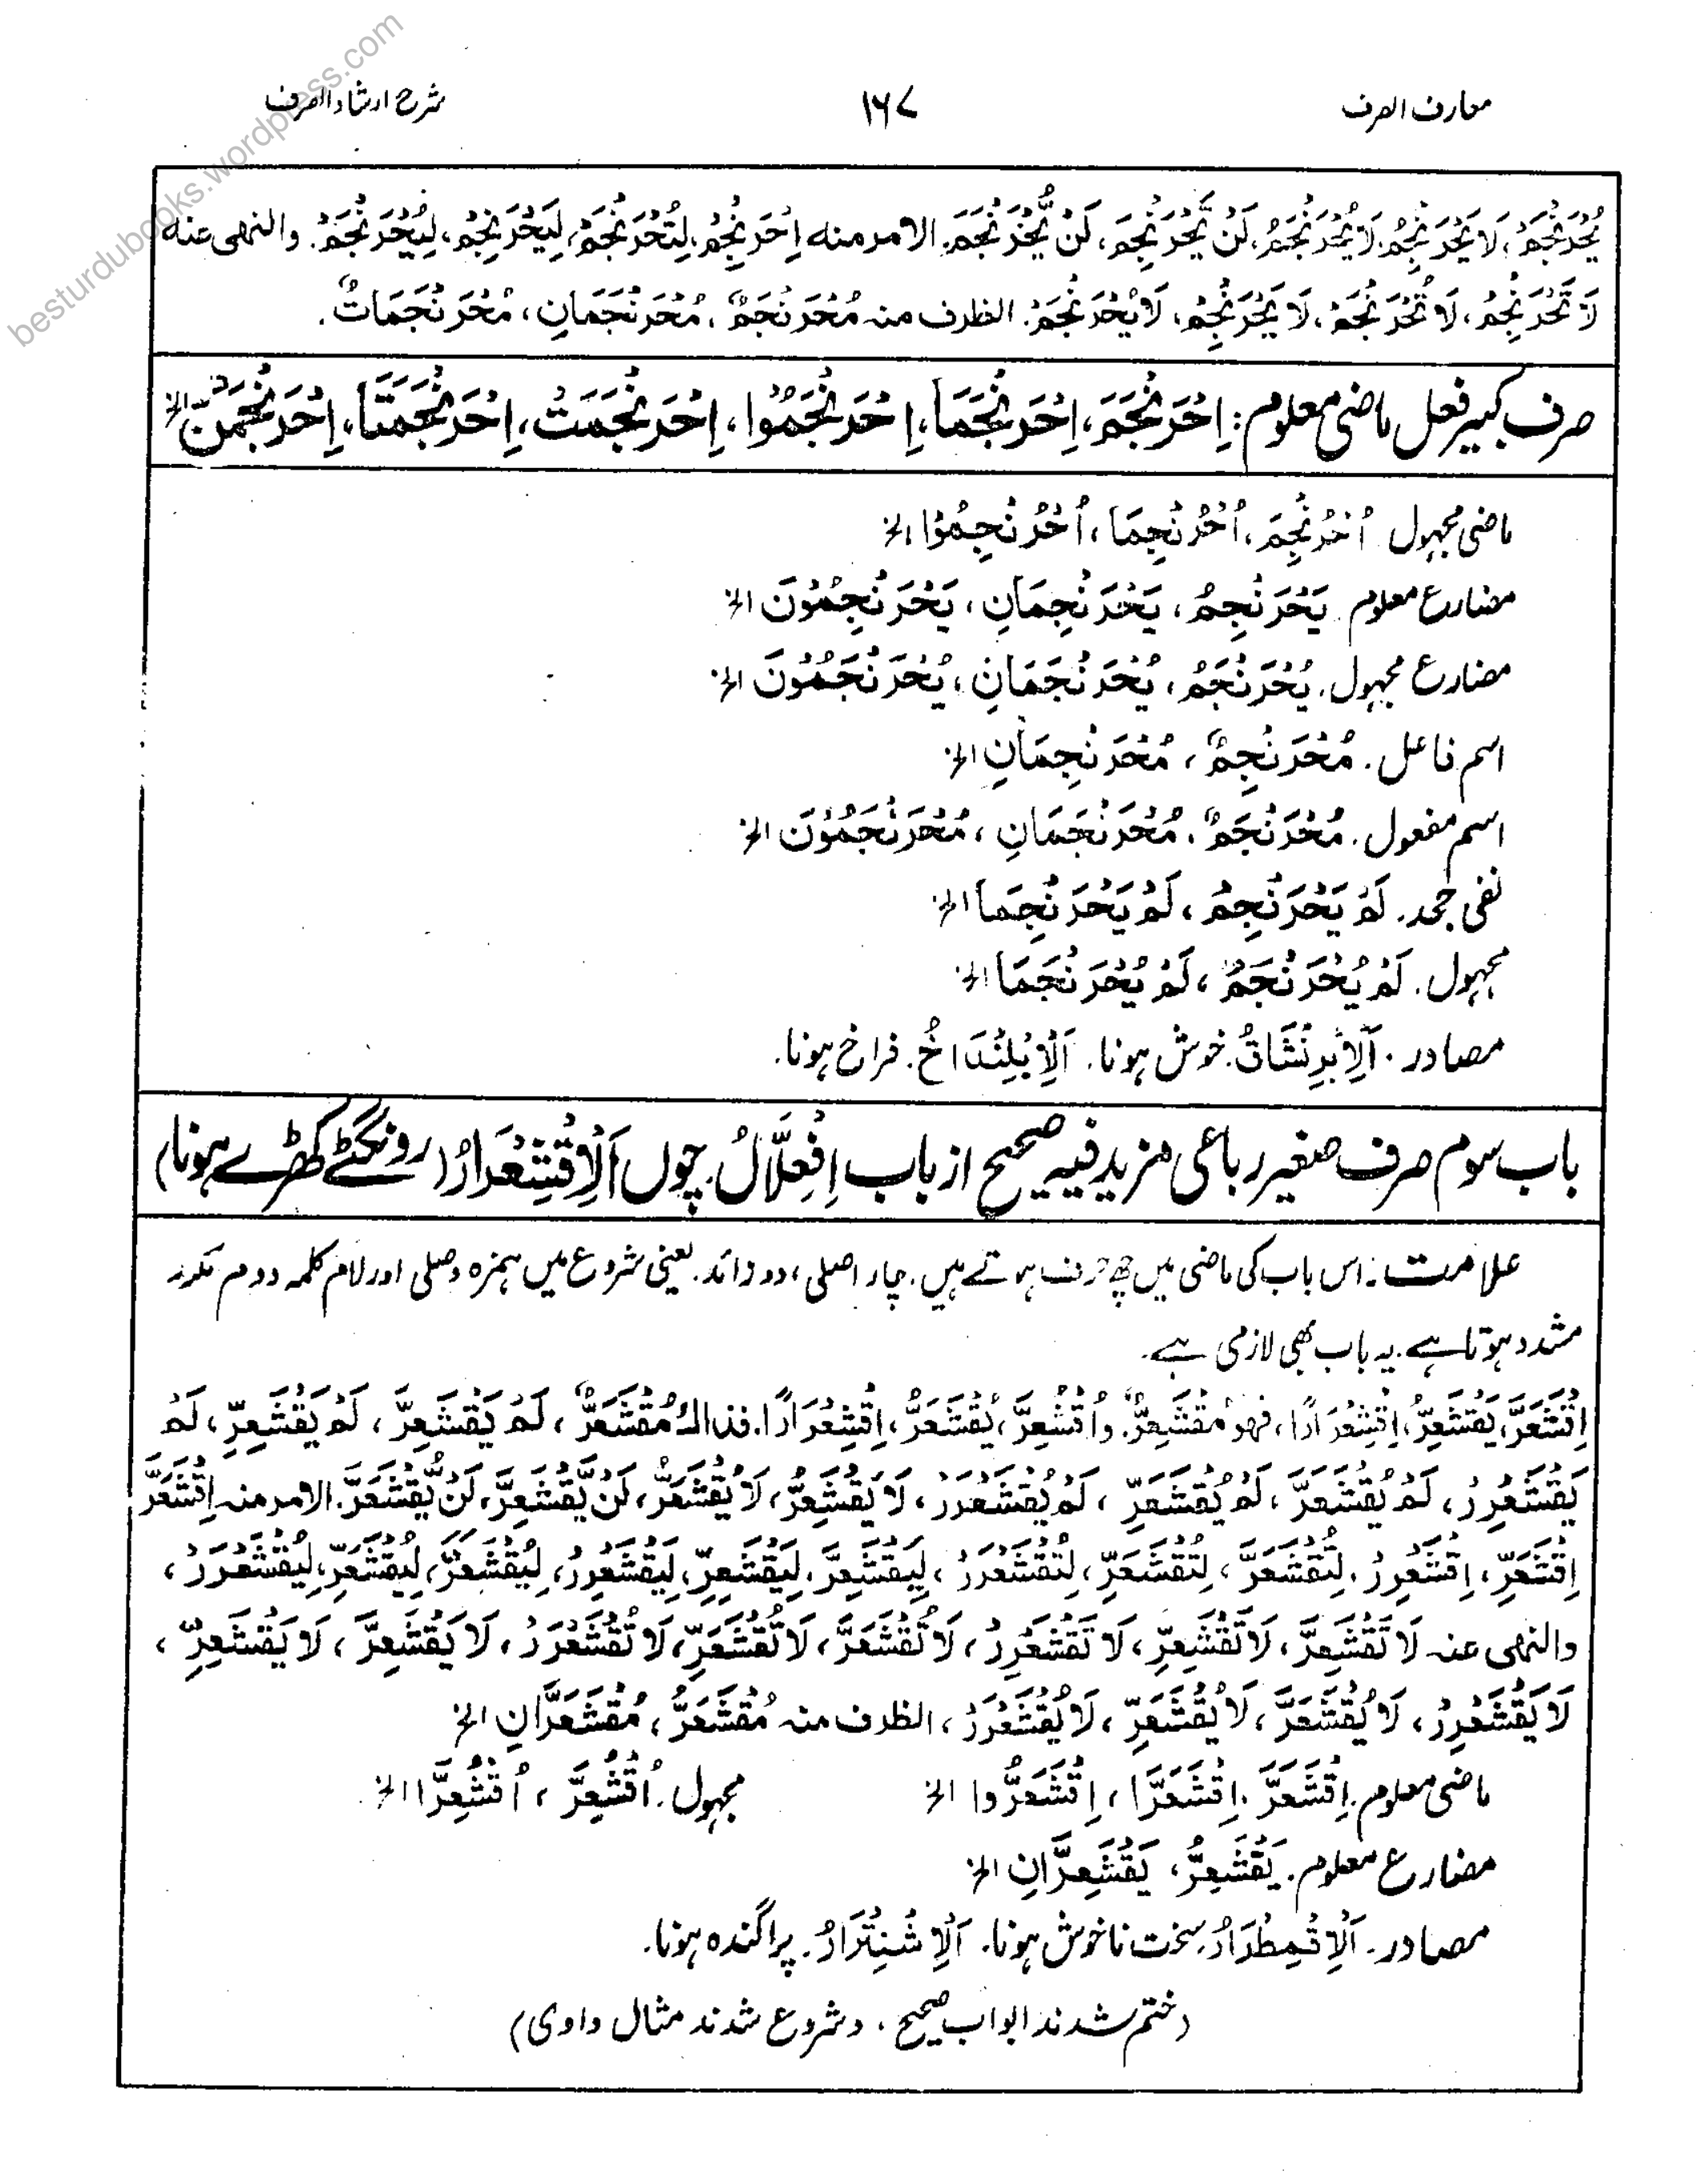 معارف الصرف ۱۶۷ شرح ارشاد الصرف
یُحْرَنْجَمُ، لَا یَحْرَنْجِمُ، لَا یُحْرَنْجَمُ، لَنْ یَّحْرَنْجِمَ، لَنْ یُّحْرَنْجَمَ. الامر منه اِحْرَنْجِمْ، لِتُحْرَنْجَمْ، لِیَحْرَنْجِمْ، لِیُحْرَنْجَمْ. والنهی عنه
لَا تَحْرَنْجِمْ، لَا تُحْرَنْجَمْ، لَا یَحْرَنْجِمْ، لَا یُحْرَنْجَمْ. الظرف منہ مُحْرَنْجَمٌ، مُحْرَنْجَمَانِ، مُحْرَنْجَمَاتٌ.
صرف کبیر فعل ماضی معلوم: اِحْرَنْجَمَ، اِحْرَنْجَمَا، اِحْرَنْجَمُوْا، اِحْرَنْجَمَتْ، اِحْرَنْجَمَتَا، اِحْرَنْجَمْنَ الخ
ماضی مجہول اُحْرُنْجِمَ، اُحْرُنْجِمَا، اُحْرُنْجِمُوْا الخ
مضارع معلوم یَحْرَنْجِمُ، یَحْرَنْجِمَانِ، یَحْرَنْجِمُوْنَ الخ
مضارع مجہول. یُحْرَنْجَمُ، یُحْرَنْجَمَانِ، یُحْرَنْجَمُوْنَ الخ
اسم فاعل. مُحْرَنْجِمٌ، مُحْرَنْجِمَانِ الخ
اسم مفعول. مُحْرَنْجَمٌ. مُحْرَنْجَمَانِ، مُحْرَنْجَمُوْنَ الخ
نفی جحد. لَمْ یَحْرَنْجِمْ، لَمْ یَحْرَنْجِمَا الخ
مجہول. لَمْ یُحْرَنْجَمْ، لَمْ یُحْرَنْجَمَا الخ
مصادر. اَلْاِبْرِنْشَاقُ. خوش ہونا. اَلْاِبْلِنْدَاخُ. فراخ ہونا.
باب سوم صرف صغیر رباعی مزید فیہ صحیح از باب اِفْعِلَّالُ. چوں اَلْاِقْشِعْرَارُ (رونگٹے کھڑے ہونا)
علامت: اس باب کی ماضی میں چھ حرف ہوتے ہیں. چار اصلی، دو زائد. یعنی شروع میں ہمزہ وصلی اور لام کلمہ دوم مکرر
مشدد ہوتا ہے. یہ باب بھی لازمی ہے.
اِقْشَعَرَّ، یَقْشَعِرُّ، اِقْشِعْرَارًا، فهو مُقْشَعِرٌّ. واُقْشُعِرَّ، یُقْشَعَرُّ، اِقْشِعْرَارًا. فذالك مُقْشَعَرٌّ، لَمْ یَقْشَعِرَّ، لَمْ یَقْشَعِرِّ، لَمْ
یَقْشَعْرِرْ، لَمْ یُقْشَعَرَّ، لَمْ یُقْشَعَرِّ، لَمْ یُقْشَعْرَرْ، لَا یَقْشَعِرُّ، لَا یُقْشَعَرُّ، لَنْ یَّقْشَعِرَّ، لَنْ یُّقْشَعَرَّ. الامر منہ اِقْشَعِرَّ
اِقْشَعِرِّ، اِقْشَعْرِرْ. لِتُقْشَعَرَّ، لِتُقْشَعَرِّ، لِتُقْشَعْرَرْ، لِیَقْشَعِرَّ، لِیَقْشَعِرِّ، لِیَقْشَعْرِرْ، لِیُقْشَعَرَّ، لِیُقْشَعَرِّ، لِیُقْشَعْرَرْ،
والنهی عنہ لَا تَقْشَعِرَّ، لَا تَقْشَعِرِّ، لَا تَقْشَعْرِرْ، لَا تُقْشَعَرَّ، لَا تُقْشَعَرِّ، لَا تُقْشَعْرَرْ، لَا یَقْشَعِرَّ، لَا یَقْشَعِرِّ،
لَا یَقْشَعْرِرْ، لَا یُقْشَعَرَّ، لَا یُقْشَعَرِّ، لَا یُقْشَعْرَرْ، الظرف منہ مُقْشَعَرٌّ، مُقْشَعَرَّانِ الخ
ماضی معلوم. اِقْشَعَرَّ. اِقْشَعَرَّا، اِقْشَعَرُّوا الخ مجہول. اُقْشُعِرَّ، اُقْشُعِرَّا الخ
مضارع معلوم. یَقْشَعِرُّ، یَقْشَعِرَّانِ الخ
مصادر. اَلْاِقْمِطْرَارُ. سخت ناخوش ہونا. اَلْاِشْنِتْرَارُ. پراگندہ ہونا.
(ختم شدند ابواب صحیح، و شروع شدند مثال واوی)
besturdubooks.wordpress.com